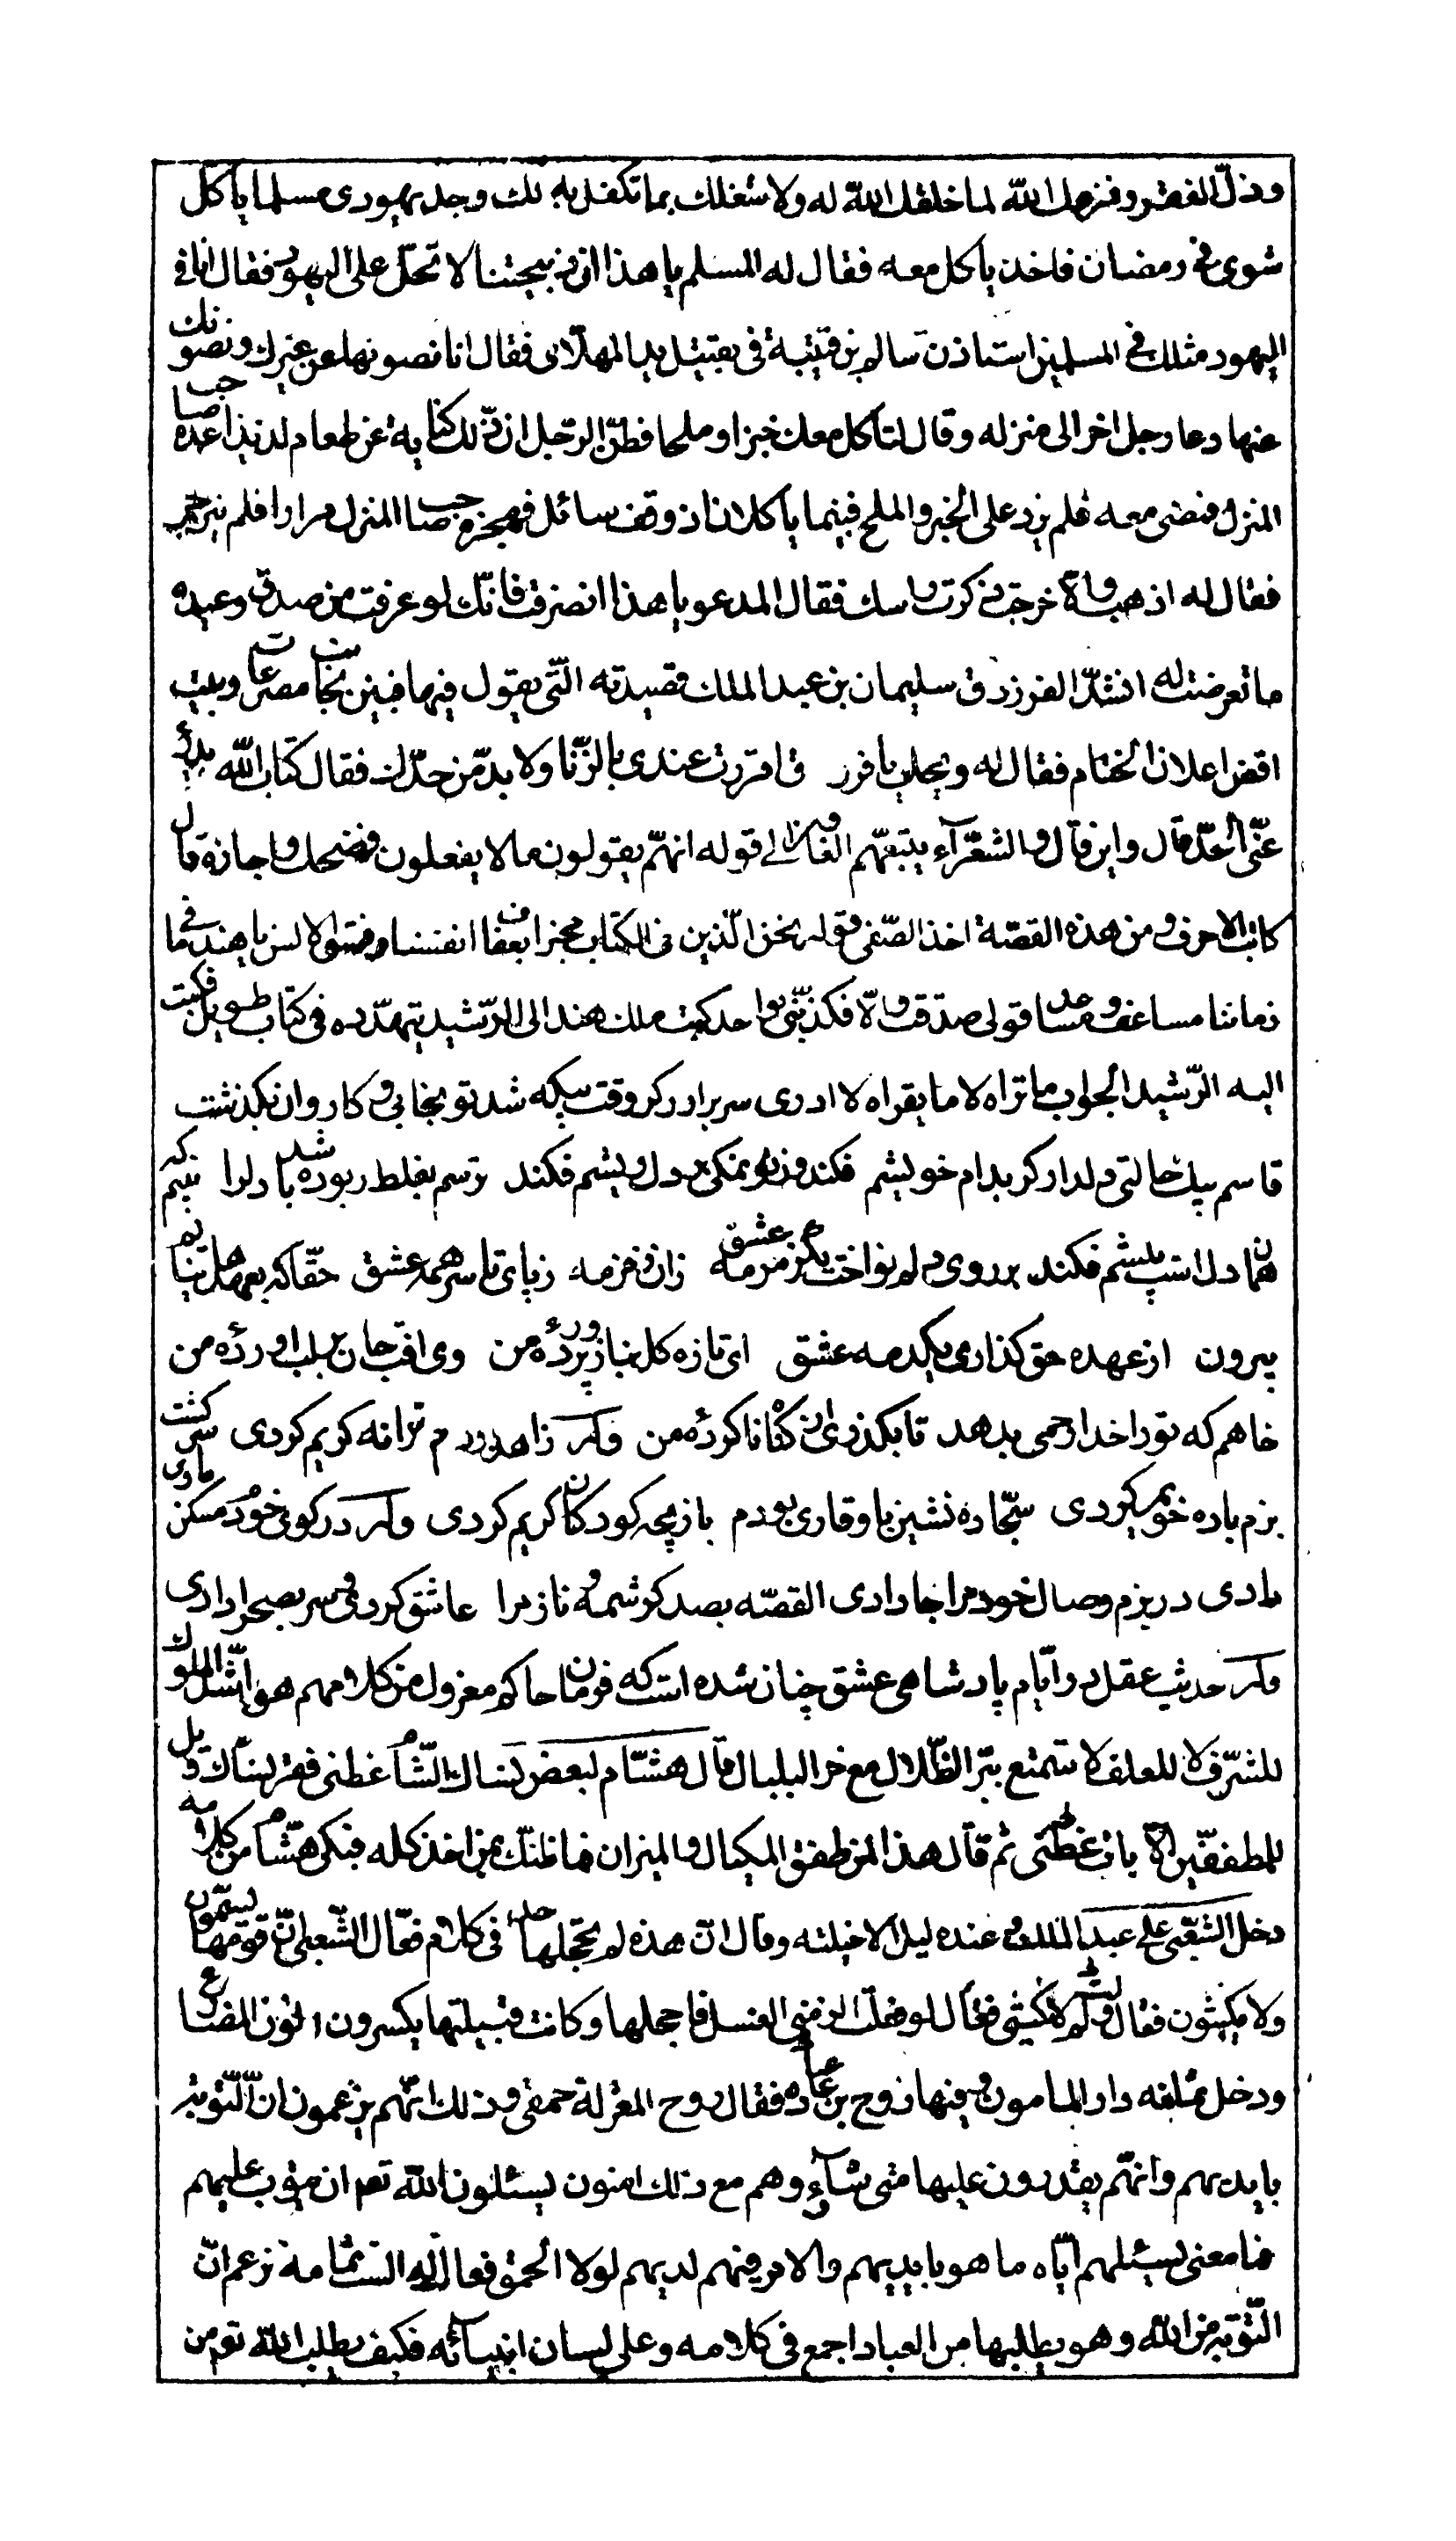 وذلّ الفقر وفزعك الله لما خلقك الله له ولا شغلك بما تكفل به لك وجد يهودى مسلما ياكل
شوى فى رمضان فاخذ ياكل معه فقال له المسلم يا هذا ان ذبيحتنا لا تحلّ على اليهود فقال انا فى
اليهود مثلك فى المسلمين استاذن سالم بن قتيبة فى تقبيل يد المهدى فقال انا نصونها عن غيرك ونصونك
عنها دعا رجل اخر الى منزله وقال لتاكل معك خبزا وملحا فظنّ الرجل ان ذلك كناية عن طعام لذيذ اعده صاحب
المنزل فمضى معه فلم يزد على الخبز والملح فبينما ياكلان اذ وقف سائل فهجره صاحب المنزل مرارا فلم ينزجر
فقال له اذهب والا خرجت وكسرت راسك فقال المدعو يا هذا انصرف فانّك لو عرفت من صدق وعيده
ما تعرضت له انشد الفرزدق سليمان بن عبد الملك قصيدته التى يقول فيها فبتن بجانبى مصرعات وبت
افض اغلاق الختام فقال له ويحك يا فرزدق اقررت عندى بالزنا ولا بدّ من حدّك فقال كتاب الله يدرأ
عنّى الحدّ قال واين قال والشعرآء يتبعهم الغاون الى قوله انهم يقولون ما لا يفعلون فضحك واجازه قال
كاتب الاحرف ومن هذه القصّة اخذ الصّفى قوله نحن الّذين فى الكتاب مخبرا بعفاف انفسنا وفسق الالسن يا هند ما فى
زماننا مساعف ومساعد قولى صدقت والّا فكذبّينى بواحد كتب ملك هند الى الرشيد يتهدّده فى كتاب طويل فكتب
اليه الرّشيد الجواب ما تراه لا ما يقراه لا ادرى سر برادر كه وقت بيكه شد تو بخابى و كاروان بگذشت
قاسم بيك حالتى دلدار كر بدام خويشم فكند وز نو نمكى بر دل ريشم فكند ترسم بغلط ربوده باشد دلرا بينم كه
همان دل است پيشم فكند بر روى دلم نواخت يك زمزمه عشق زان زمزمه ز پاى تا سر همه عشق حقّا كه بعهدها نيايم
بيرون از عهده حق گذارى يكدمه عشق اى تازه كل بناز پرورده من وى افت جان بلب اورده من
خاهم كه تورا خدا رحمى بدهد تا بگذرى از گناه ناكرده من وله زاهد بودم ترانه گويم كردى سر گشته
بزم باده خويم كردى سجّاده نشين با وقارى بودم بازيچه كودكان كويم كردى وله در كوى خود مسكن و ماوى
دادى در بزم وصال خود مرا جا دادى القصّه بصد كرشمه و ناز مرا عاشق كردى و سر بصحرا دادى
وله حديث عقل در ايّام پادشاهى عشق چنان شده است كه فرمان حاكم معزول من كلامهم هو اشبه الملوك
للشرف لا للعلف لا تتمتع ببرد الظّلال مع حر البلبال قال هشام لبعض نساك الشام عظنى فقرا الناسك ويل
للمطففين الاية بات عظنى ثم قال هذا لمن طفف المكيال والميزان فما ظنّك بمن اخذ كله فبكى هشام من كلامه
دخل الشعبى على عبد الملك وعنده ليلى الاخيلية وقال انّ هذه لم يخجلها احد فى كلام فقال الشعبى انّ قومها يسمون
ولا يكتنون فقال ولم لا نكتنى فقال لو فعلت لزمنى الغسل فاخجلها وكانت قبيلتها يكسرون النون المضارع
ودخل ثمامه دار المامون وفيها روح بن عباده فقال روح المعتزلة حمقى وذلك انهم يزعمون انّ التّوبة
بايديهم وانهم يقدرون عليها متى شاؤا وهم مع ذلك امنون يسئلون الله تعم ان يتوب عليهم
فما معنى يسئلهم ايّاه ما هو بايديهم والامر فيهم لديهم لولا الحمق فقال له الثمامة تزعم انّ
التّوبة من الله وهو يطلبها من العباد اجمع فى كلامه وعلى لسان انبيائه فكيف يطلب الله تعم من